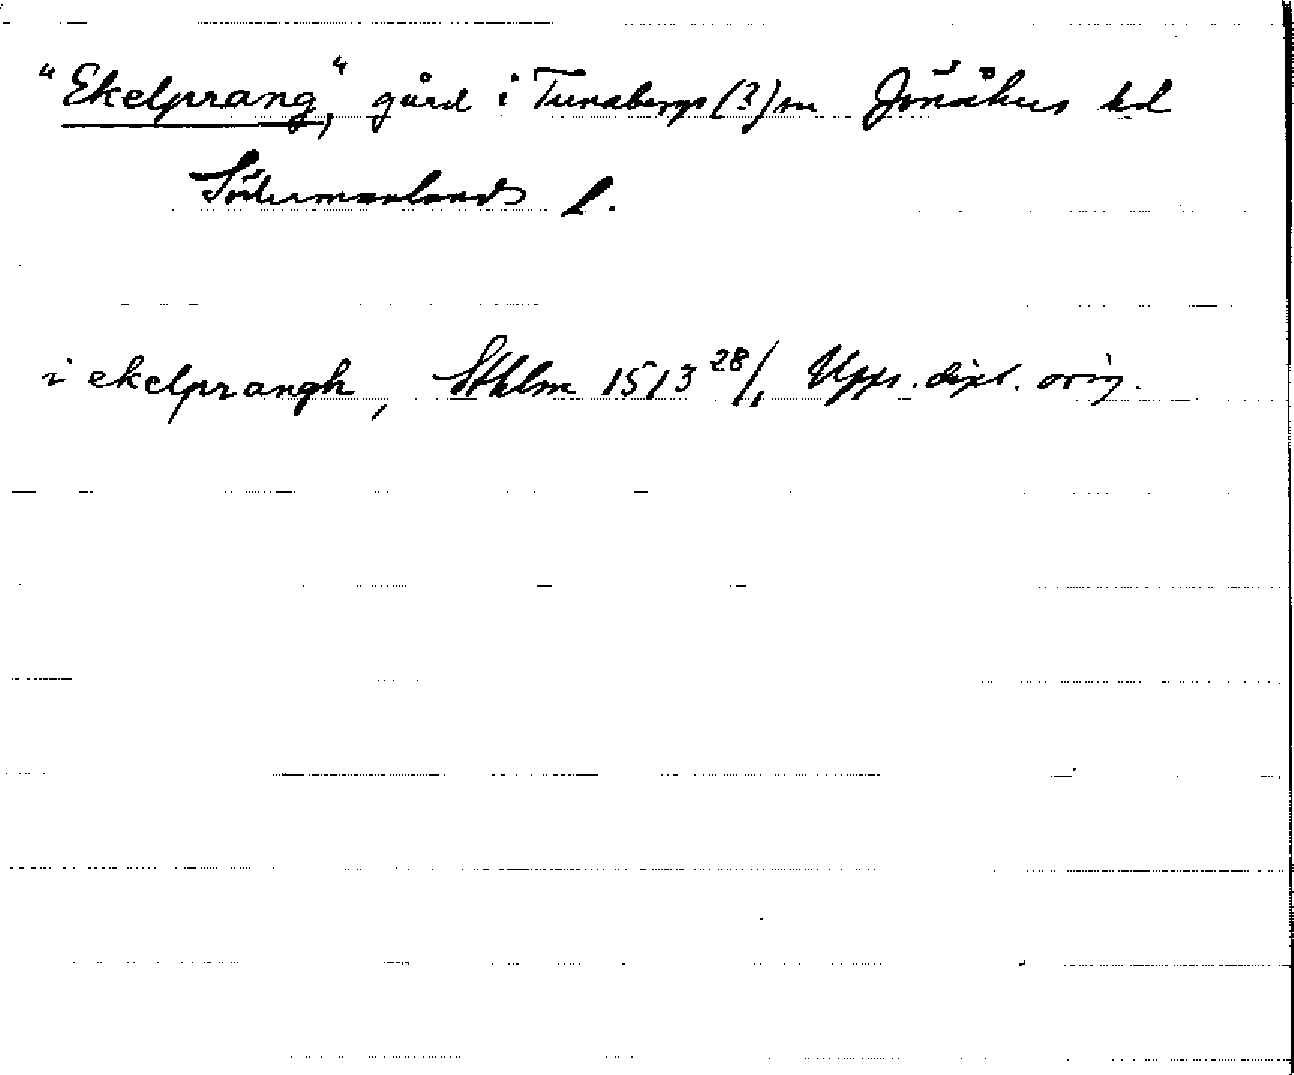 "Ekelprang", gård i Tunabergs (?) sn Jönåkers hd
Södermanlands l.
i ekelprangh, Sthlm 1513 28/1 Upps. dipl. orig.